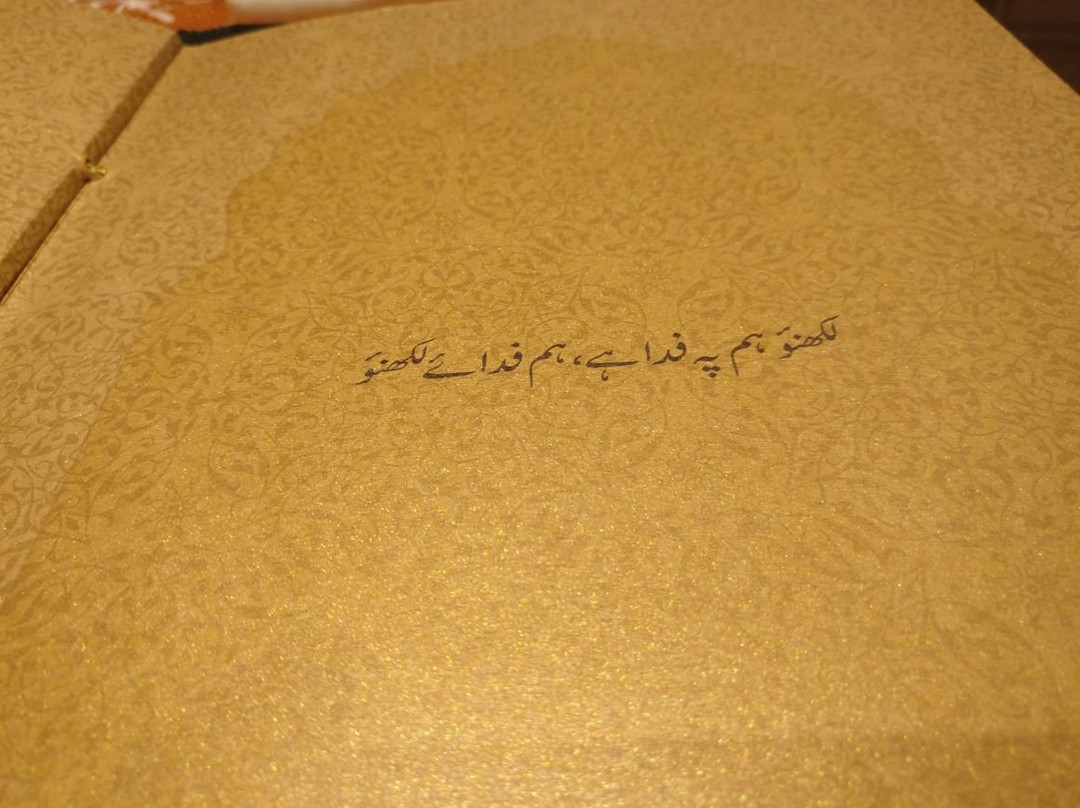 لکھنؤ ہم پہ فدا ہے، ہم فدائے لکھنؤ